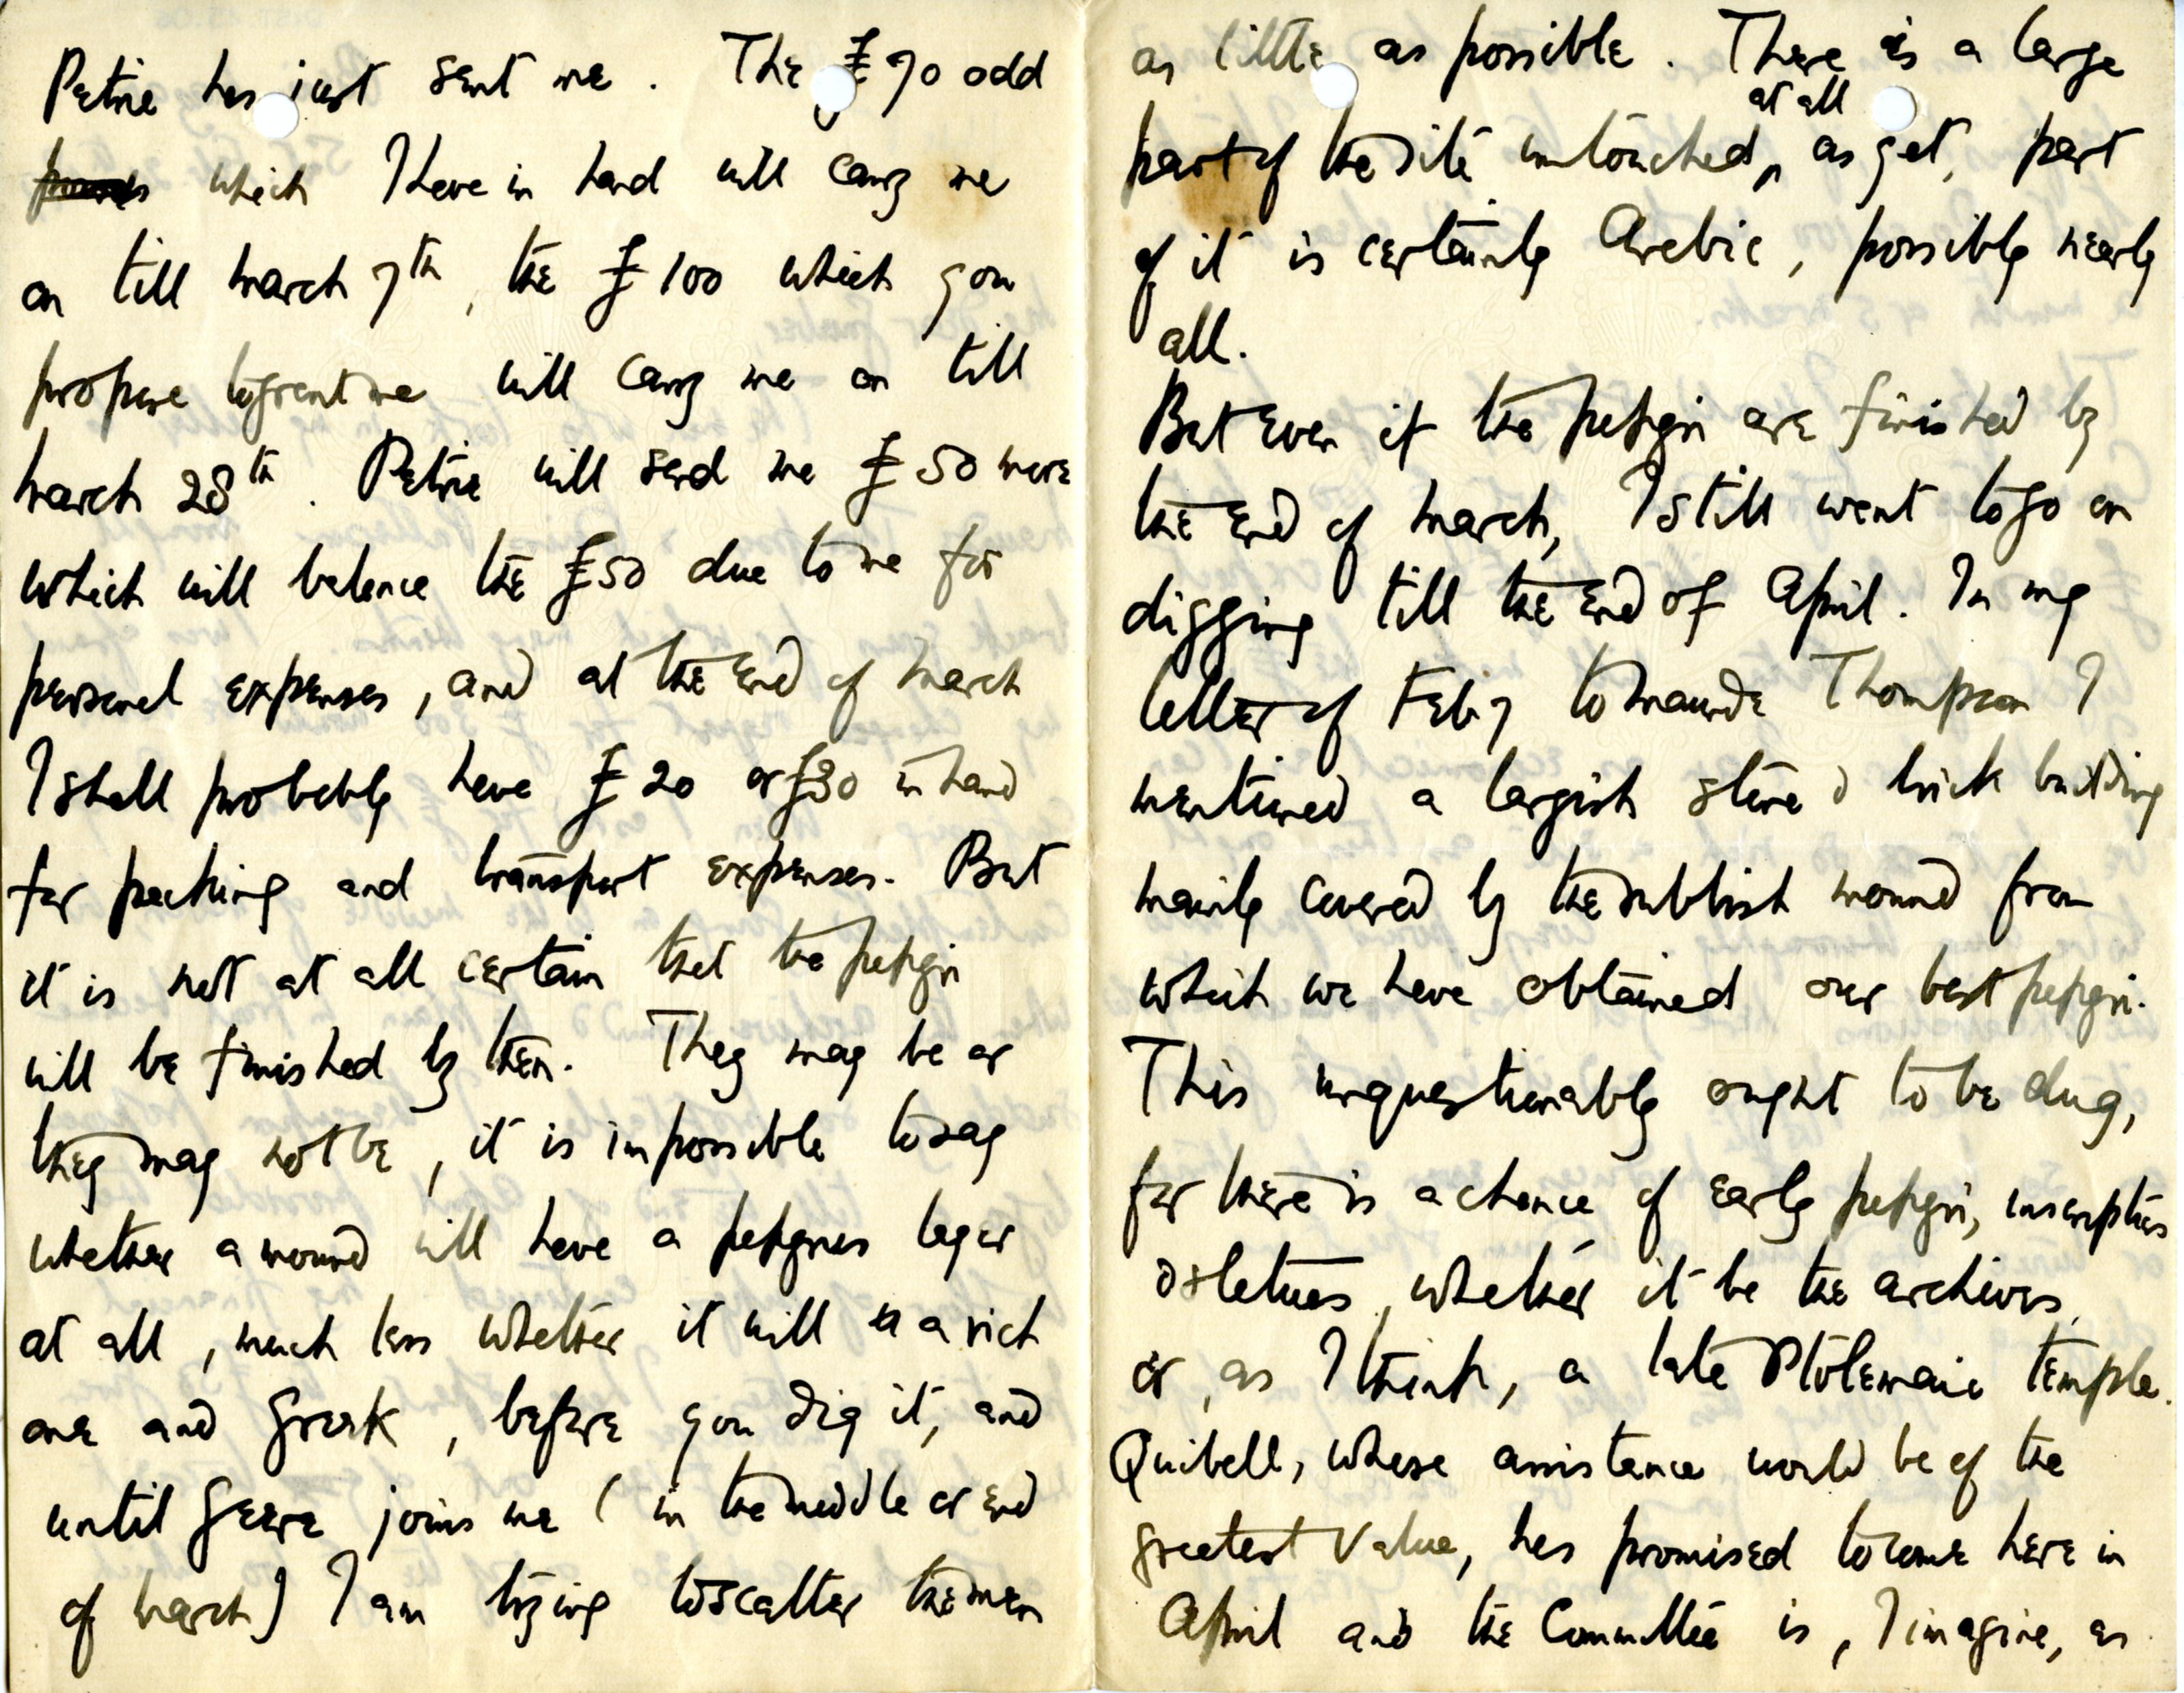 Petrie has just sent me. The £70 odd
which I have in hand will carry me
on till March 7th, the £100 which you
propose to grant me will carry me on till
March 28th. Petrie will send me £50 more
which will balance the £50 due to me for
personal expenses, and at the end of March
I shall probably have £20 or £30 in hand
for packing and transport expenses. But
it is not at all certain that the papyri
will be finished by then. They may be or
they may not be, it is impossible to say
whether a mound will have a papyrus layer
at all, much less whether it will be a rich
one and Greek, before you dig it, and
until Geere joins me (in the middle or end
of March) I am trying to scatter the men
as little as possible. There is a large
part of the site untouched at all, as yet, part
of it is certainly Arabic, possibly nearly
all.
But even if the papyri are finished by
the end of March, I still want to go on
digging till the end of April. In my
letter of Feb. 7 to Maunde Thompson I
mentioned a largish stone & brick building
mainly covered by the rubbish mound from
which we have obtained our best papyri.
This unquestionably ought to be dug,
for there is a chance of early papyri, inscriptions
or statues, whether it be the archives,
or, as I think, a late Ptolemaic temple.
Quibell, whose assistance would be of the
greatest value, has promised to come here in
April and the Committee is, I imagine, as